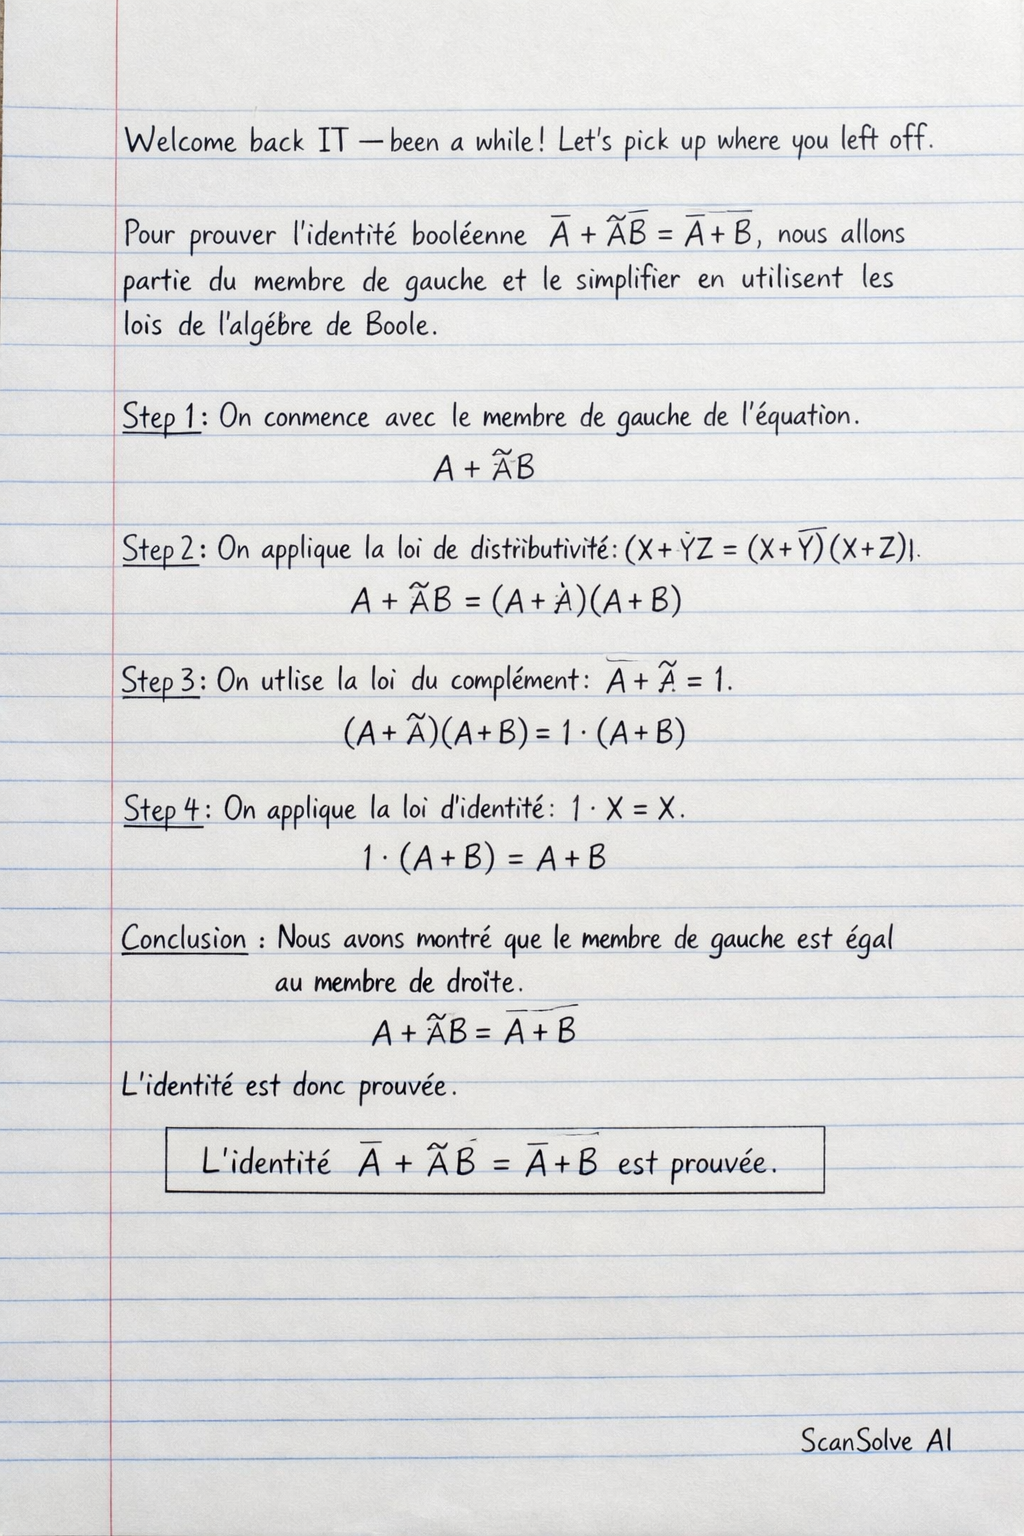 Welcome back IT — been a while! Let's pick up where you left off.
Pour prouver l'identité booléenne A̅ + ÃB̅ = A̅ + B̅, nous allons
partie du membre de gauche et le simplifier en utilisent les
lois de l'algébre de Boole.
Step 1: On conmence avec le membre de gauche de l'équation.
A + ÃB
Step 2: On applique la loi de distributivité: (X + ẎZ = (X + Y̅)(X + Z)|.
A + ÃB = (A + Ȧ)(A + B)
Step 3: On utlise la loi du complément: A̅ + Ã = 1.
(A + Ã)(A + B) = 1 · (A + B)
Step 4: On applique la loi d'identité: 1 · X = X.
1 · (A + B) = A + B
Conclusion : Nous avons montré que le membre de gauche est égal
au membre de droite.
A + ÃB = A̅ ̅+̅ ̅B̅
L'identité est donc prouvée.
L'identité A̅ + ÃB̅ = A̅ + B̅ est prouvée.
ScanSolve AI